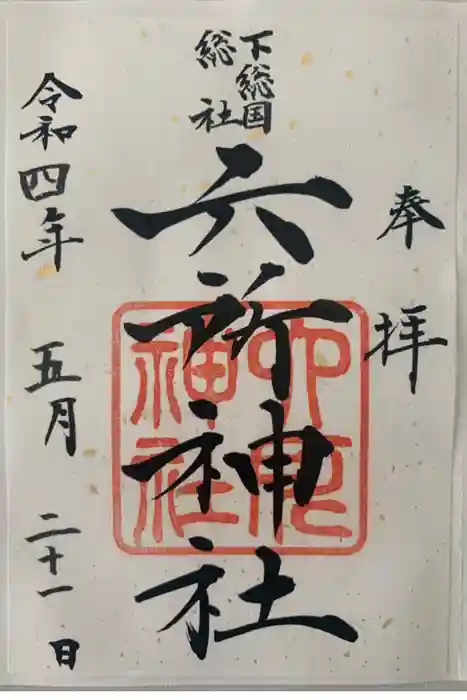 奉拝
下総国
総社
六所神社
六所神社
令和四年五月二十一日